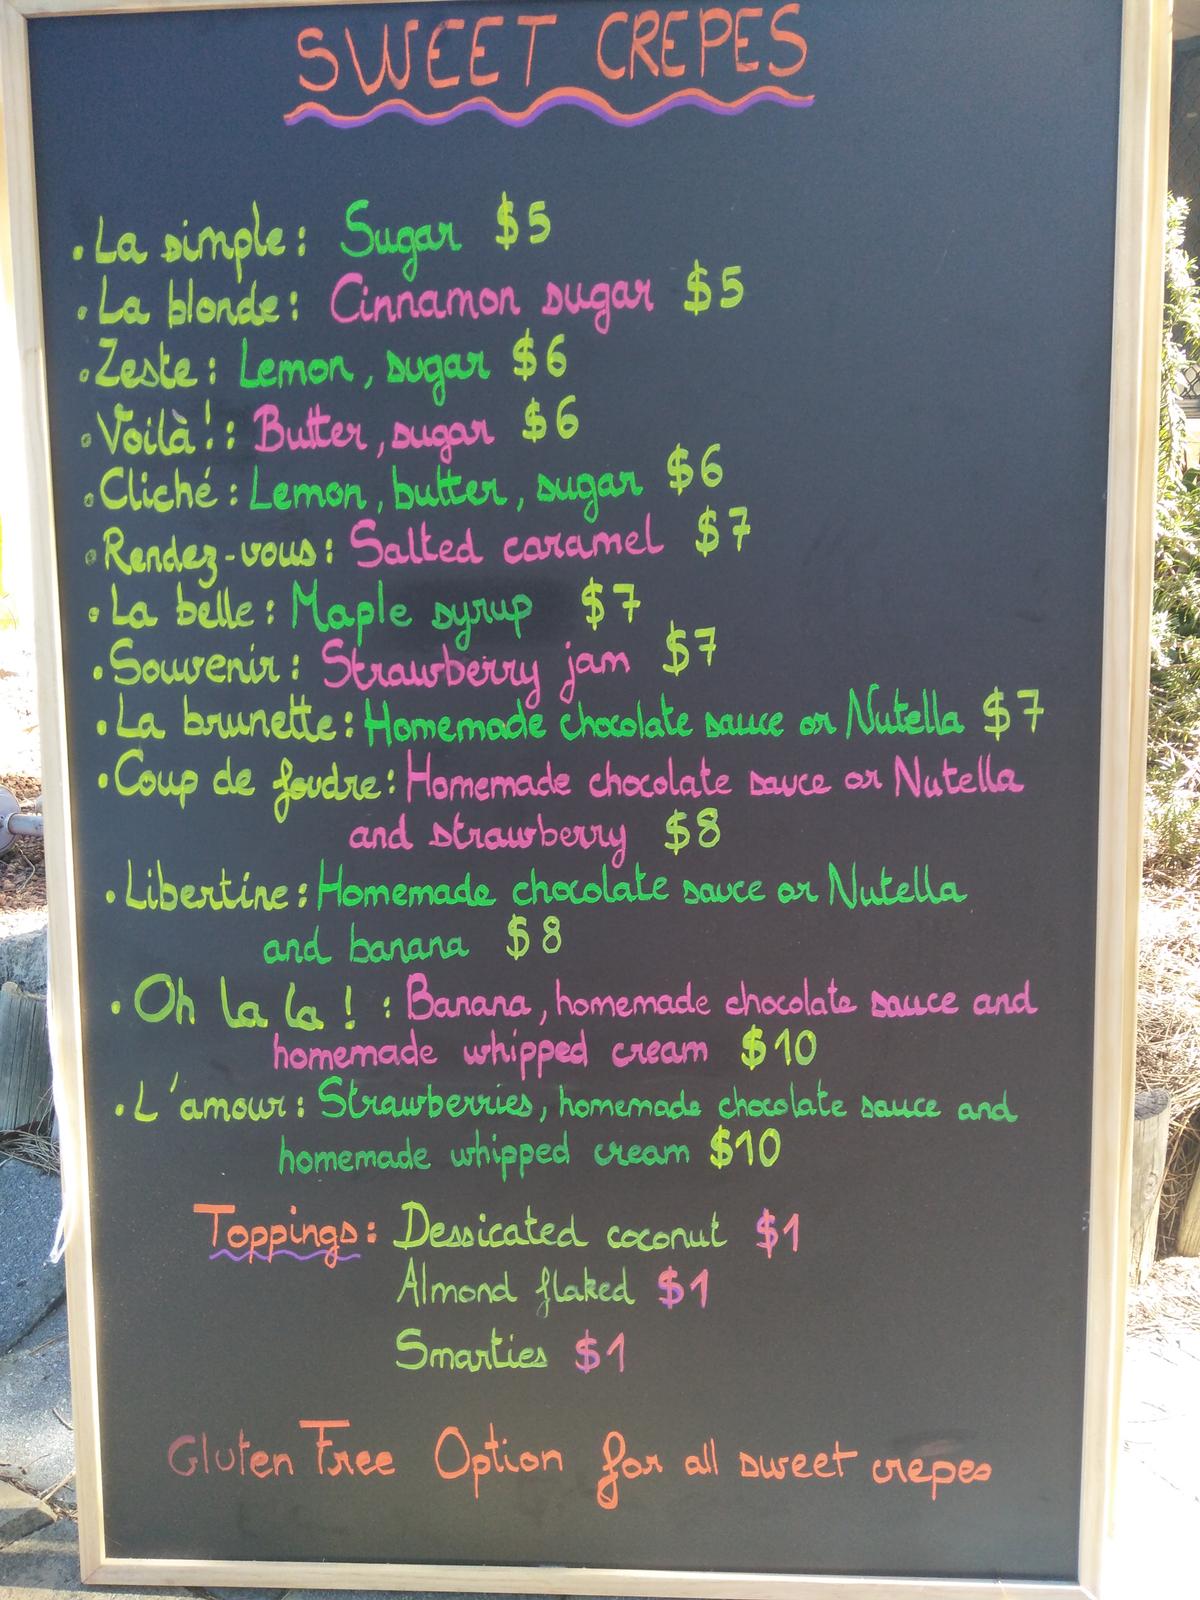 SWEET CREPES
. La simple: Sugar $5
. La blonde: Cinnamon sugar $5
. Zeste: Lemon, sugar $6
. Voilà!: Butter, sugar $6
. Cliché: Lemon, butter, sugar $6
. Rendez-vous: Salted caramel $7
. La belle: Maple syrup $7
. Souvenir: Strawberry jam $7
. La brunette: Homemade chocolate sauce or Nutella $7
. Coup de foudre: Homemade chocolate sauce or Nutella
and strawberry $8
. Libertine: Homemade chocolate sauce or Nutella
and banana $8
. Oh la la! : Banana, homemade chocolate sauce and
homemade whipped cream $10
. L'amour: Strawberries, homemade chocolate sauce and
homemade whipped cream $10
Toppings: Dessicated coconut $1
Almond flaked $1
Smarties $1
Gluten Free Option for all sweet crepes